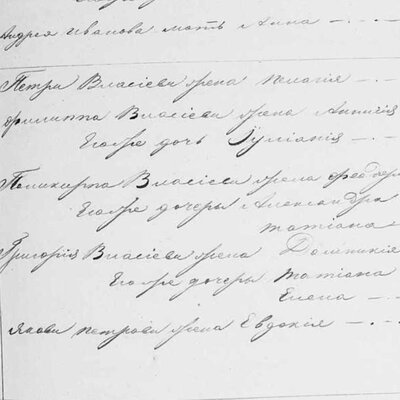 Андрея Иванова мать Анна
Петра Власіева жена Пелагія
Филиппа Власіева жена Анисія
Его же дочь Іуліанія
Поликарпа Власіева жена
Его же дочеры Александра
Татіана
Григорія Власіева жена Домникія
Его же дочеры Татіана
Елена
Якова Петрова жена Евдокія